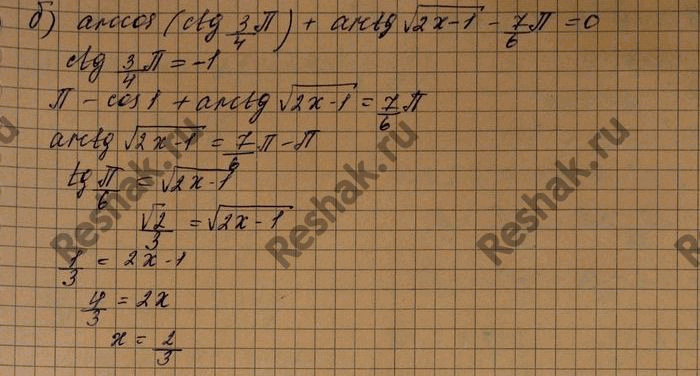 б) arccos (ctg 3/4 π) + arctg √(2x-1) - 7/6 π = 0
ctg 3/4 π = -1
π - cos 1 + arctg √(2x-1) = 7/6 π
arctg √(2x-1) = 7/6 π - π
tg π/6 = √(2x-1)
√2/3 = √(2x-1)
1/3 = 2x-1
4/3 = 2x
x = 2/3
Reshak.ru
Reshak.ru
Reshak.ru